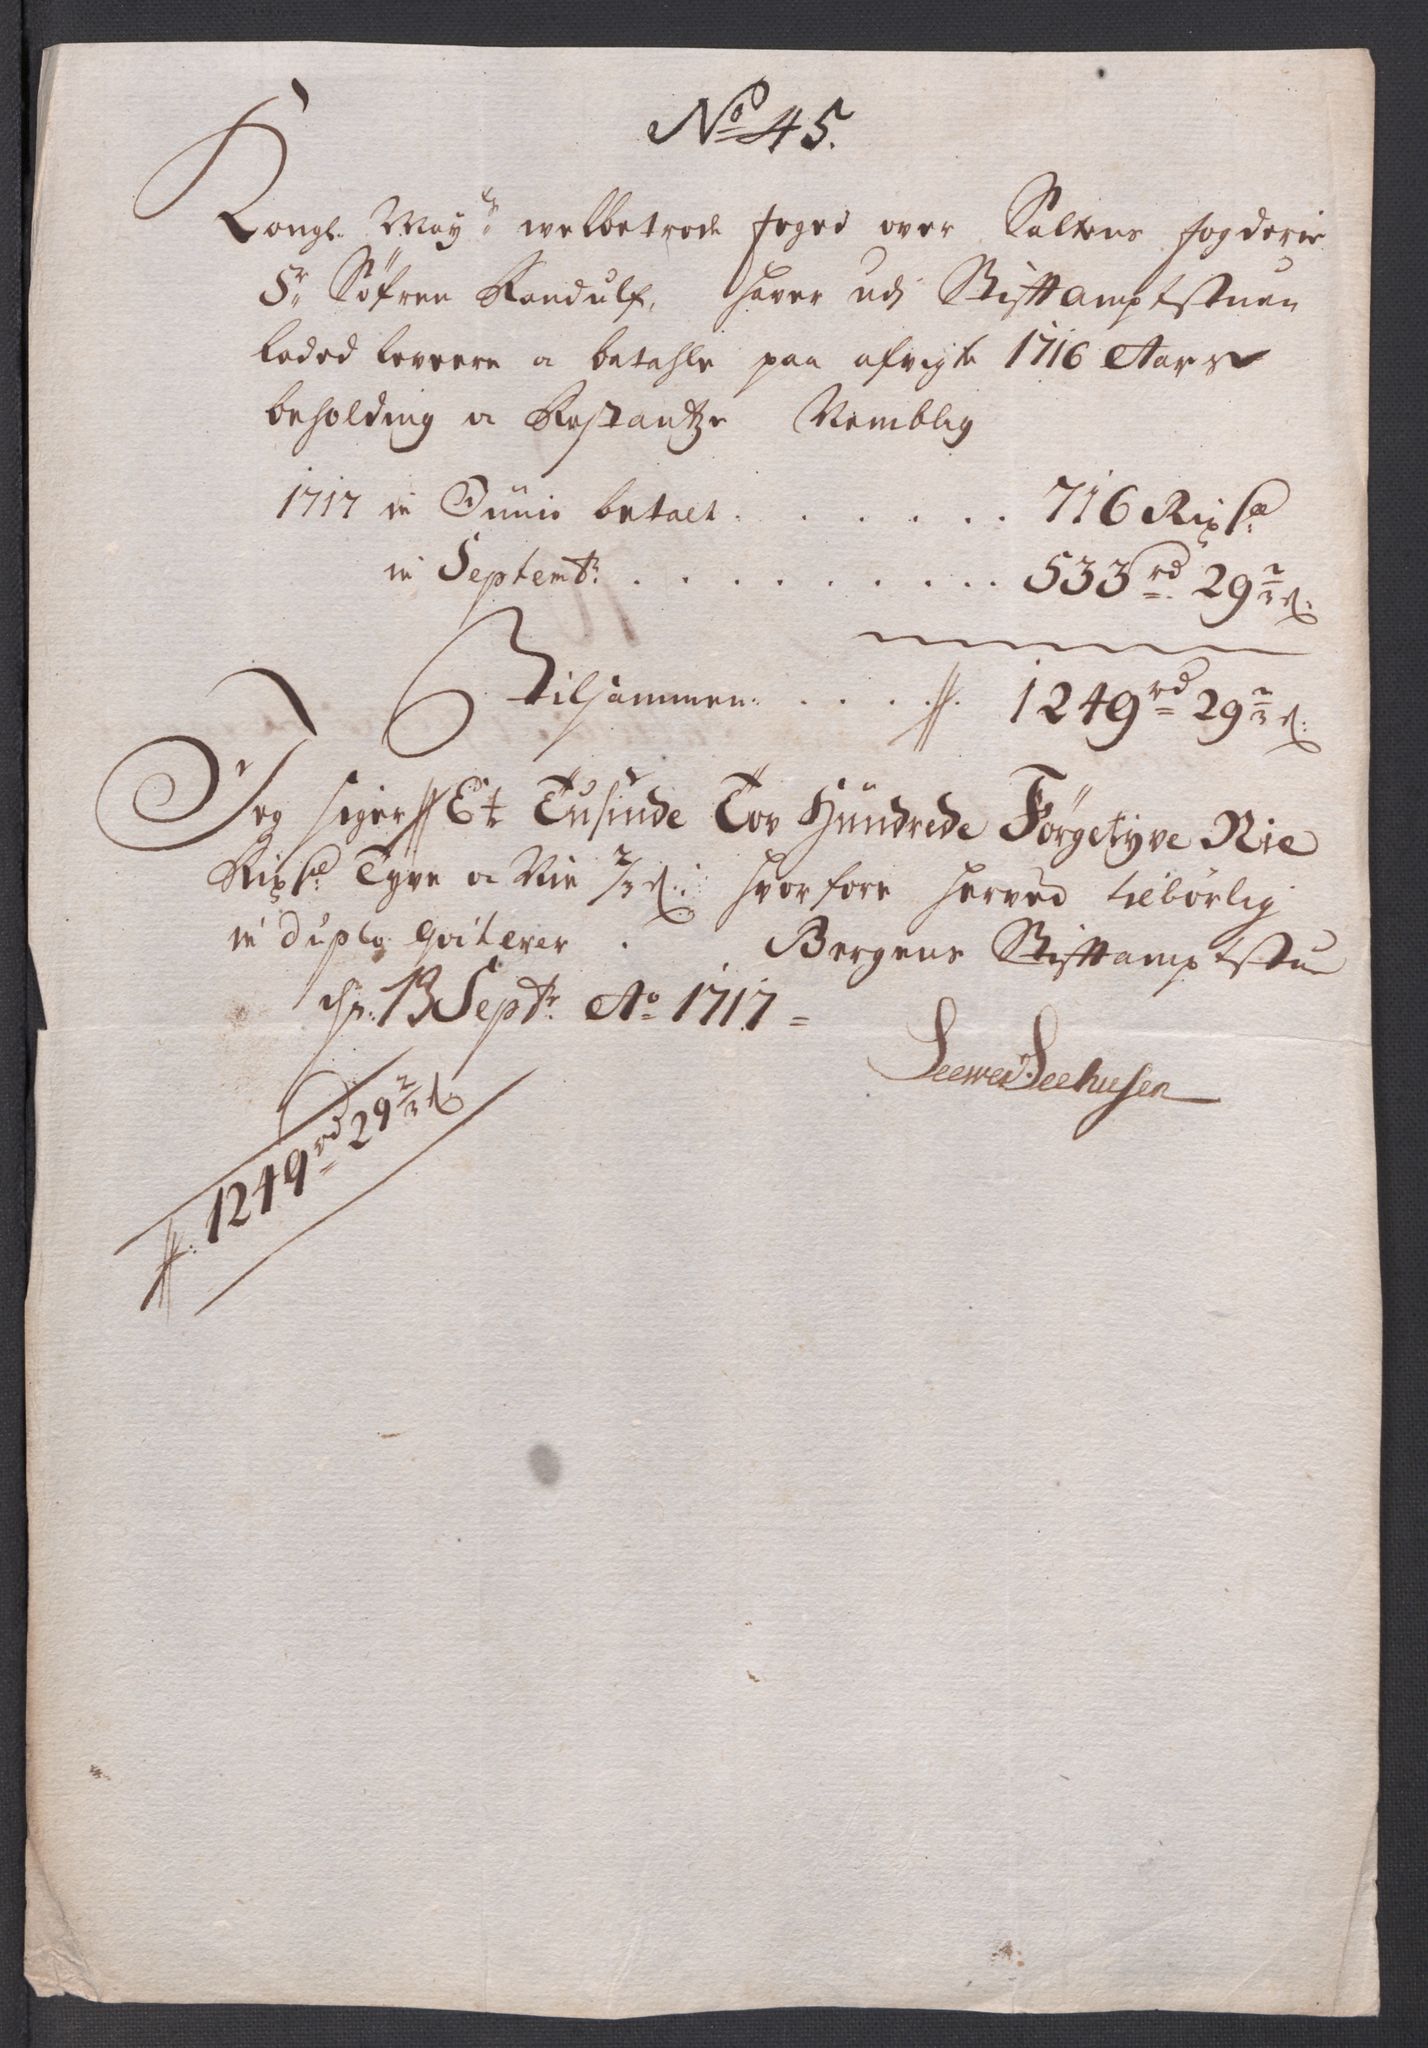 No 45.
Kongl. May.ts welbetrode foged over Saltens fogderie
Sr. Söfren Randulf, haver udj Stifftamptstuen
laded levere a betahle paa afvigte 1716 Aars
beholding a Restantze Nemblig
1717 in Junio betalt . . . . . . 716 Rixdl.
in Septembr. . . . . . . . . . 533 rd. 29 2/3 s.
Tilsammen. . . . . . 1249 rd. 29 2/3 s.
Jeg siger Et Tusinde Tov Hundrede Förgetyve Nie
Rixdl. Tyve a Nie 2/3 s. hvorfore herved tilbörlig
in duplo qviterer. Bergens Stifftamptstue
dn. 13 Septr. Ao. 1717 =
Seewer Seehusen
1249 rd. 29 2/3 s.